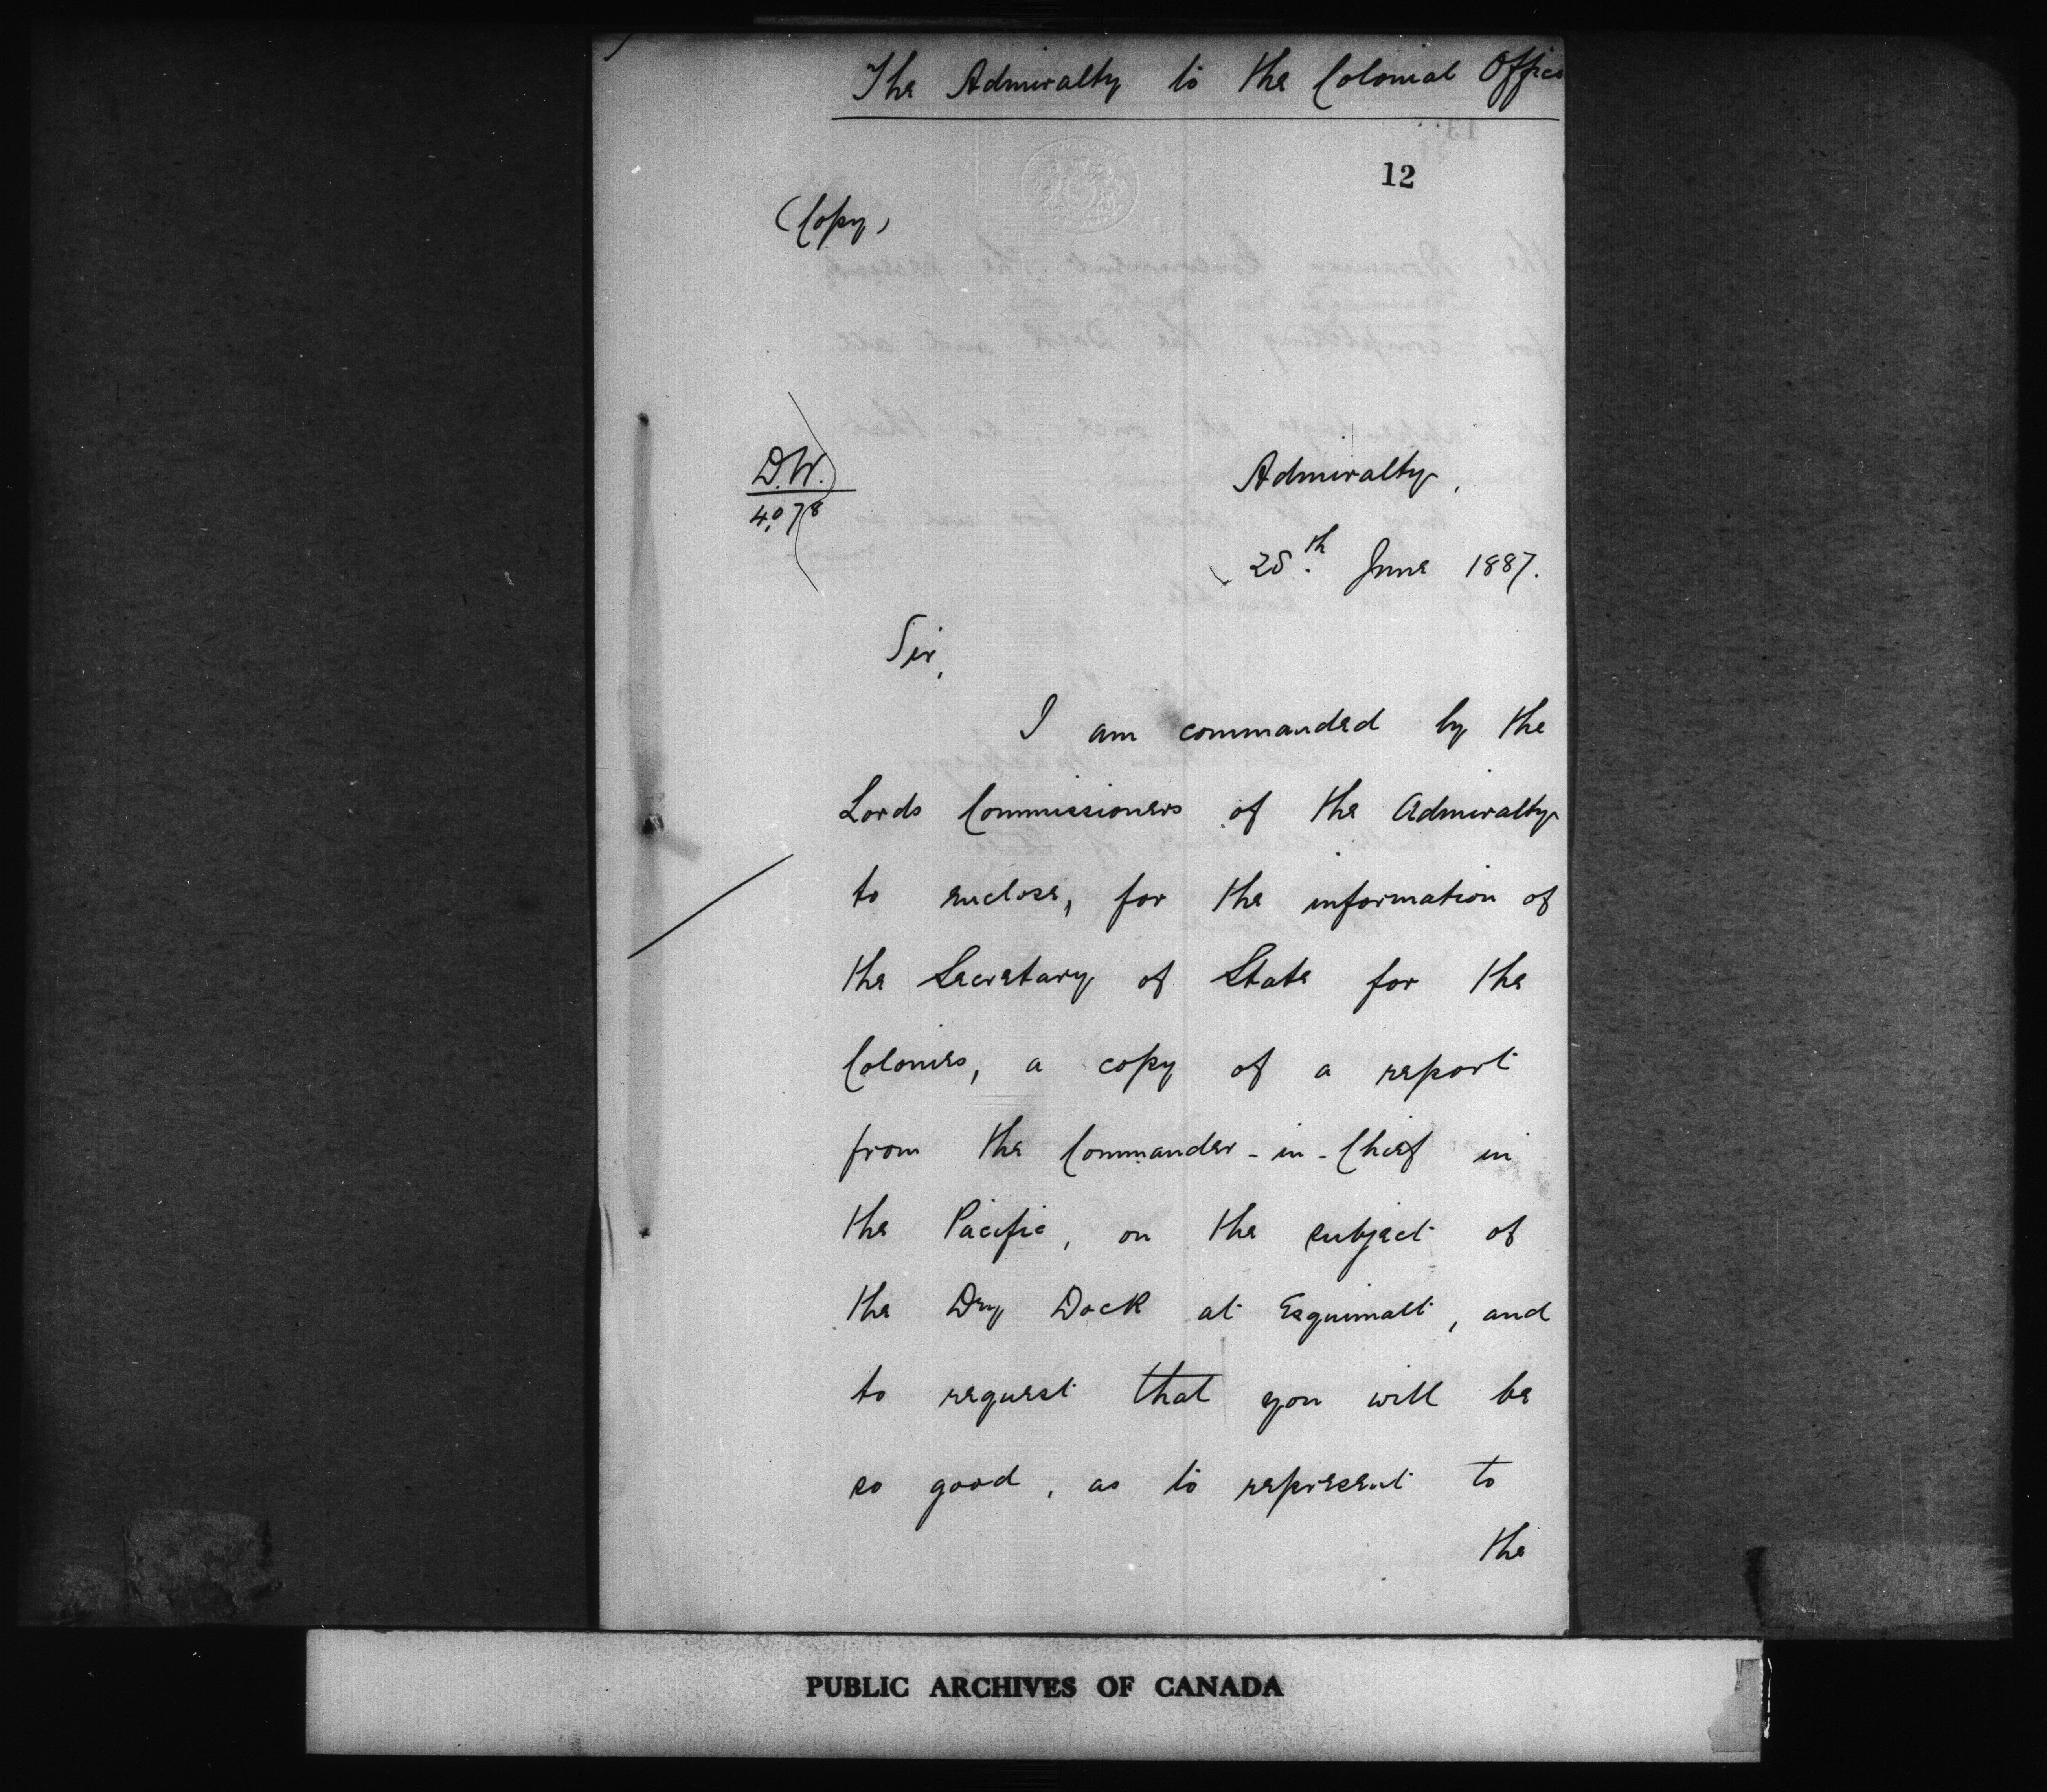 The Admiralty to the Colonial Office
12
(Copy)
D.W.
4,078
Admiralty,
28th June 1887.
Sir,
I am commanded by the
Lords Commissioners of the Admiralty
to enclose, for the information of
the Secretary of State for the
Colonies, a copy of a report
from the Commander-in-Chief in
the Pacific, on the subject of
the Dry Dock at Esquimalt, and
to request that you will be
so good, as to represent to
the
PUBLIC ARCHIVES OF CANADA